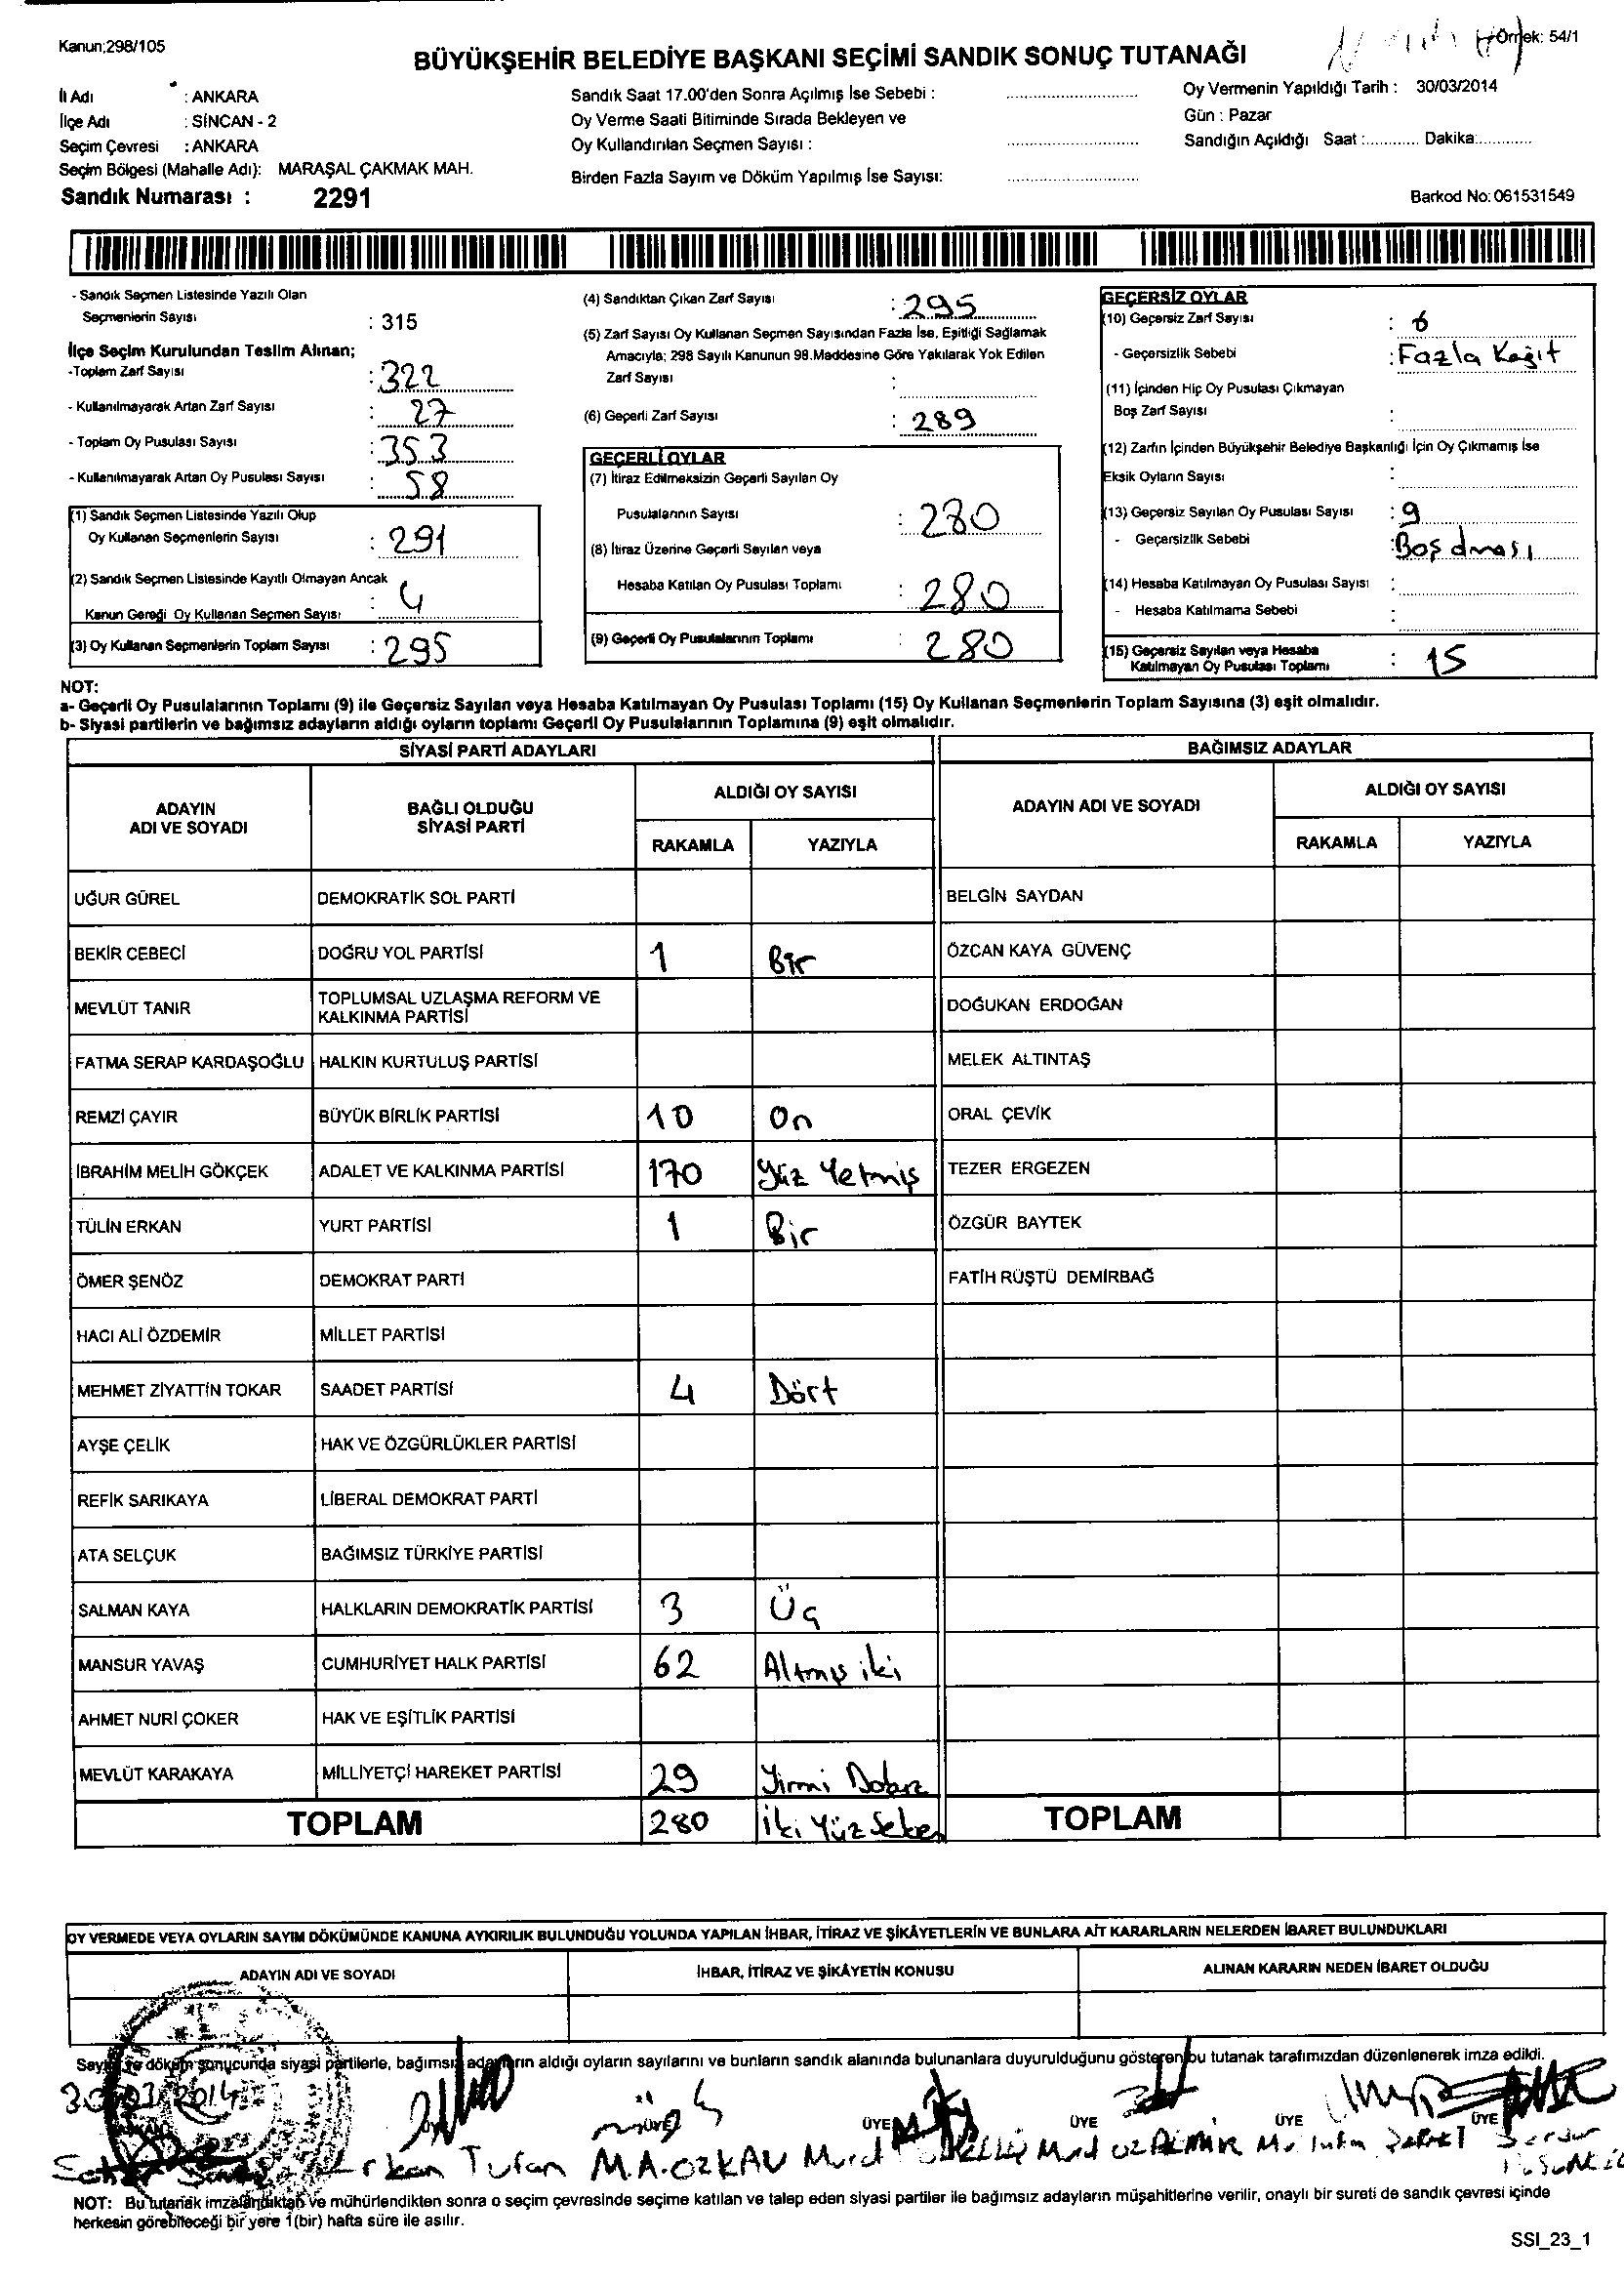 Kanun;298/105
Örnek: 54/1
BÜYÜKŞEHİR BELEDİYE BAŞKANI SEÇİMİ SANDIK SONUÇ TUTANAĞI
İl Adı : ANKARA
İlçe Adı : SİNCAN - 2
Seçim Çevresi : ANKARA
Seçim Bölgesi (Mahalle Adı): MARAŞAL ÇAKMAK MAH.
Sandık Numarası : 2291
Sandık Saat 17.00'den Sonra Açılmış İse Sebebi :
Oy Verme Saati Bitiminde Sırada Bekleyen ve
Oy Kullandırılan Seçmen Sayısı :
Birden Fazla Sayım ve Döküm Yapılmış İse Sayısı:
Oy Vermenin Yapıldığı Tarih : 30/03/2014
Gün : Pazar
Sandığın Açıldığı Saat :............ Dakika:............
Barkod No: 061531549
- Sandık Seçmen Listesinde Yazılı Olan
Seçmenlerin Sayısı : 315
İlçe Seçim Kurulundan Teslim Alınan;
-Toplam Zarf Sayısı : 322
- Kullanılmayarak Artan Zarf Sayısı : 27
- Toplam Oy Pusulası Sayısı : 353
- Kullanılmayarak Artan Oy Pusulası Sayısı : 58
(1) Sandık Seçmen Listesinde Yazılı Olup
Oy Kullanan Seçmenlerin Sayısı : 291
(2) Sandık Seçmen Listesinde Kayıtlı Olmayan Ancak
Kanun Gereği Oy Kullanan Seçmen Sayısı : 4
(3) Oy Kullanan Seçmenlerin Toplam Sayısı : 295
(4) Sandıktan Çıkan Zarf Sayısı : 295
(5) Zarf Sayısı Oy Kullanan Seçmen Sayısından Fazla İse, Eşitliği Sağlamak
Amacıyla; 298 Sayılı Kanunun 98.Maddesine Göre Yakılarak Yok Edilen
Zarf Sayısı :
(6) Geçerli Zarf Sayısı : 289
GEÇERLİ OYLAR
(7) İtiraz Edilmeksizin Geçerli Sayılan Oy
Pusulalarının Sayısı : 280
(8) İtiraz Üzerine Geçerli Sayılan veya
Hesaba Katılan Oy Pusulası Toplamı : 280
(9) Geçerli Oy Pusulalarının Toplamı : 280
GEÇERSİZ OYLAR
(10) Geçersiz Zarf Sayısı : 6
- Geçersizlik Sebebi : Fazla Kağıt
(11) İçinden Hiç Oy Pusulası Çıkmayan
Boş Zarf Sayısı :
(12) Zarfın İçinden Büyükşehir Belediye Başkanlığı İçin Oy Çıkmamış İse
Eksik Oyların Sayısı :
(13) Geçersiz Sayılan Oy Pusulası Sayısı : 9
- Geçersizlik Sebebi : Boş olması
(14) Hesaba Katılmayan Oy Pusulası Sayısı :
- Hesaba Katılmama Sebebi :
(15) Geçersiz Sayılan veya Hesaba
Katılmayan Oy Pusulası Toplamı : 15
NOT:
a- Geçerli Oy Pusulalarının Toplamı (9) ile Geçersiz Sayılan veya Hesaba Katılmayan Oy Pusulası Toplamı (15) Oy Kullanan Seçmenlerin Toplam Sayısına (3) eşit olmalıdır.
b- Siyasi partilerin ve bağımsız adayların aldığı oyların toplamı Geçerli Oy Pusulalarının Toplamına (9) eşit olmalıdır.
SİYASİ PARTİ ADAYLARI BAĞIMSIZ ADAYLAR
ADAYIN ADI VE SOYADI BAĞLI OLDUĞU SİYASİ PARTİ ALDIĞI OY SAYISI ADAYIN ADI VE SOYADI ALDIĞI OY SAYISI
RAKAMLA YAZIYLA RAKAMLA YAZIYLA
UĞUR GÜREL DEMOKRATİK SOL PARTİ BELGİN SAYDAN
BEKİR CEBECİ DOĞRU YOL PARTİSİ 1 Bir ÖZCAN KAYA GÜVENÇ
MEVLÜT TANIR TOPLUMSAL UZLAŞMA REFORM VE KALKINMA PARTİSİ DOĞUKAN ERDOĞAN
FATMA SERAP KARDAŞOĞLU HALKIN KURTULUŞ PARTİSİ MELEK ALTINTAŞ
REMZİ ÇAYIR BÜYÜK BİRLİK PARTİSİ 10 On ORAL ÇEVİK
İBRAHİM MELİH GÖKÇEK ADALET VE KALKINMA PARTİSİ 170 Yüz Yetmiş TEZER ERGEZEN
TÜLİN ERKAN YURT PARTİSİ 1 Bir ÖZGÜR BAYTEK
ÖMER ŞENÖZ DEMOKRAT PARTİ FATİH RÜŞTÜ DEMİRBAĞ
HACI ALİ ÖZDEMİR MİLLET PARTİSİ
MEHMET ZİYATTİN TOKAR SAADET PARTİSİ 4 Dört
AYŞE ÇELİK HAK VE ÖZGÜRLÜKLER PARTİSİ
REFİK SARIKAYA LİBERAL DEMOKRAT PARTİ
ATA SELÇUK BAĞIMSIZ TÜRKİYE PARTİSİ
SALMAN KAYA HALKLARIN DEMOKRATİK PARTİSİ 3 Üç
MANSUR YAVAŞ CUMHURİYET HALK PARTİSİ 62 Altmış iki
AHMET NURİ ÇOKER HAK VE EŞİTLİK PARTİSİ
MEVLÜT KARAKAYA MİLLİYETÇİ HAREKET PARTİSİ 29 Yirmi Dokuz
TOPLAM 280 İki Yüz Seksen TOPLAM
OY VERMEDE VEYA OYLARIN SAYIM DÖKÜMÜNDE KANUNA AYKIRILIK BULUNDUĞU YOLUNDA YAPILAN İHBAR, İTİRAZ VE ŞİKÂYETLERİN VE BUNLARA AİT KARARLARIN NELERDEN İBARET BULUNDUKLARI
ADAYIN ADI VE SOYADI İHBAR, İTİRAZ VE ŞİKÂYETİN KONUSU ALINAN KARARIN NEDEN İBARET OLDUĞU
Sayım ve döküm sonucunda siyasi partilerle, bağımsız adayların aldığı oyların sayılarını ve bunların sandık alanında bulunanlara duyurulduğunu gösteren bu tutanak tarafımızdan düzenlenerek imza edildi.
30/03/2014
ÜYE ÜYE ÜYE ÜYE ÜYE
Erkan Tufan M.A.OZKAN Murat
NOT: Bu tutanak imzalandıktan ve mühürlendikten sonra o seçim çevresinde seçime katılan ve talep eden siyasi partiler ile bağımsız adayların müşahitlerine verilir, onaylı bir sureti de sandık çevresi içinde
herkesin görebileceği bir yere 1(bir) hafta süre ile asılır.
SSI_23_1